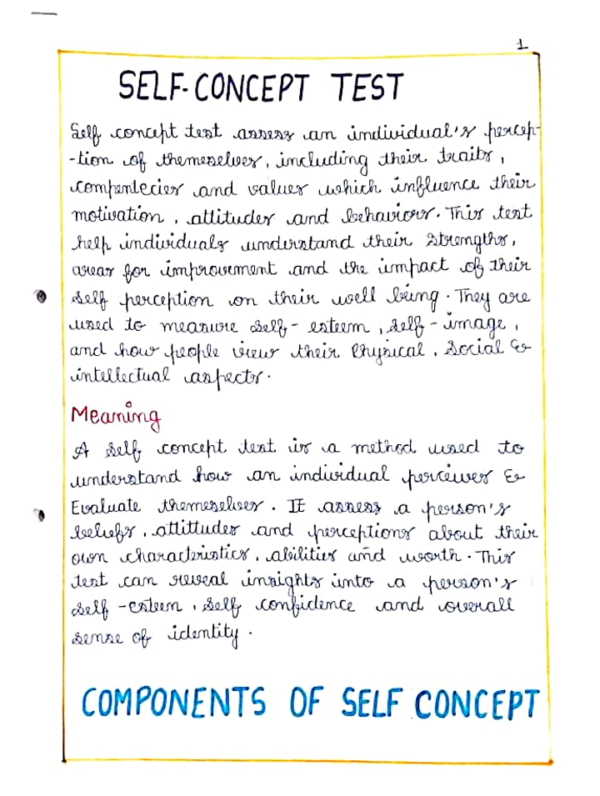 1
SELF-CONCEPT TEST
Self concept test assess an individual's percep-
-tion of themeselves, including their traits,
compentecies and values which influence their
motivation, attitudes and behaviors. This test
help individuals understand their strengths,
areas for improvement and the impact of their
self perception on their well being. They are
used to measure self-esteem, self-image,
and how people view their Physical, Social &
intellectual aspects.
Meaning
A self concept test is a method used to
understand how an individual perceives &
Evaluate themeselves. It assess a person's
beliefs, attittudes and perceptions about their
own characteristics, abilities and worth. This
test can reveal insights into a person's
self-esteem, self confidence and overall
sense of identity.
COMPONENTS OF SELF CONCEPT